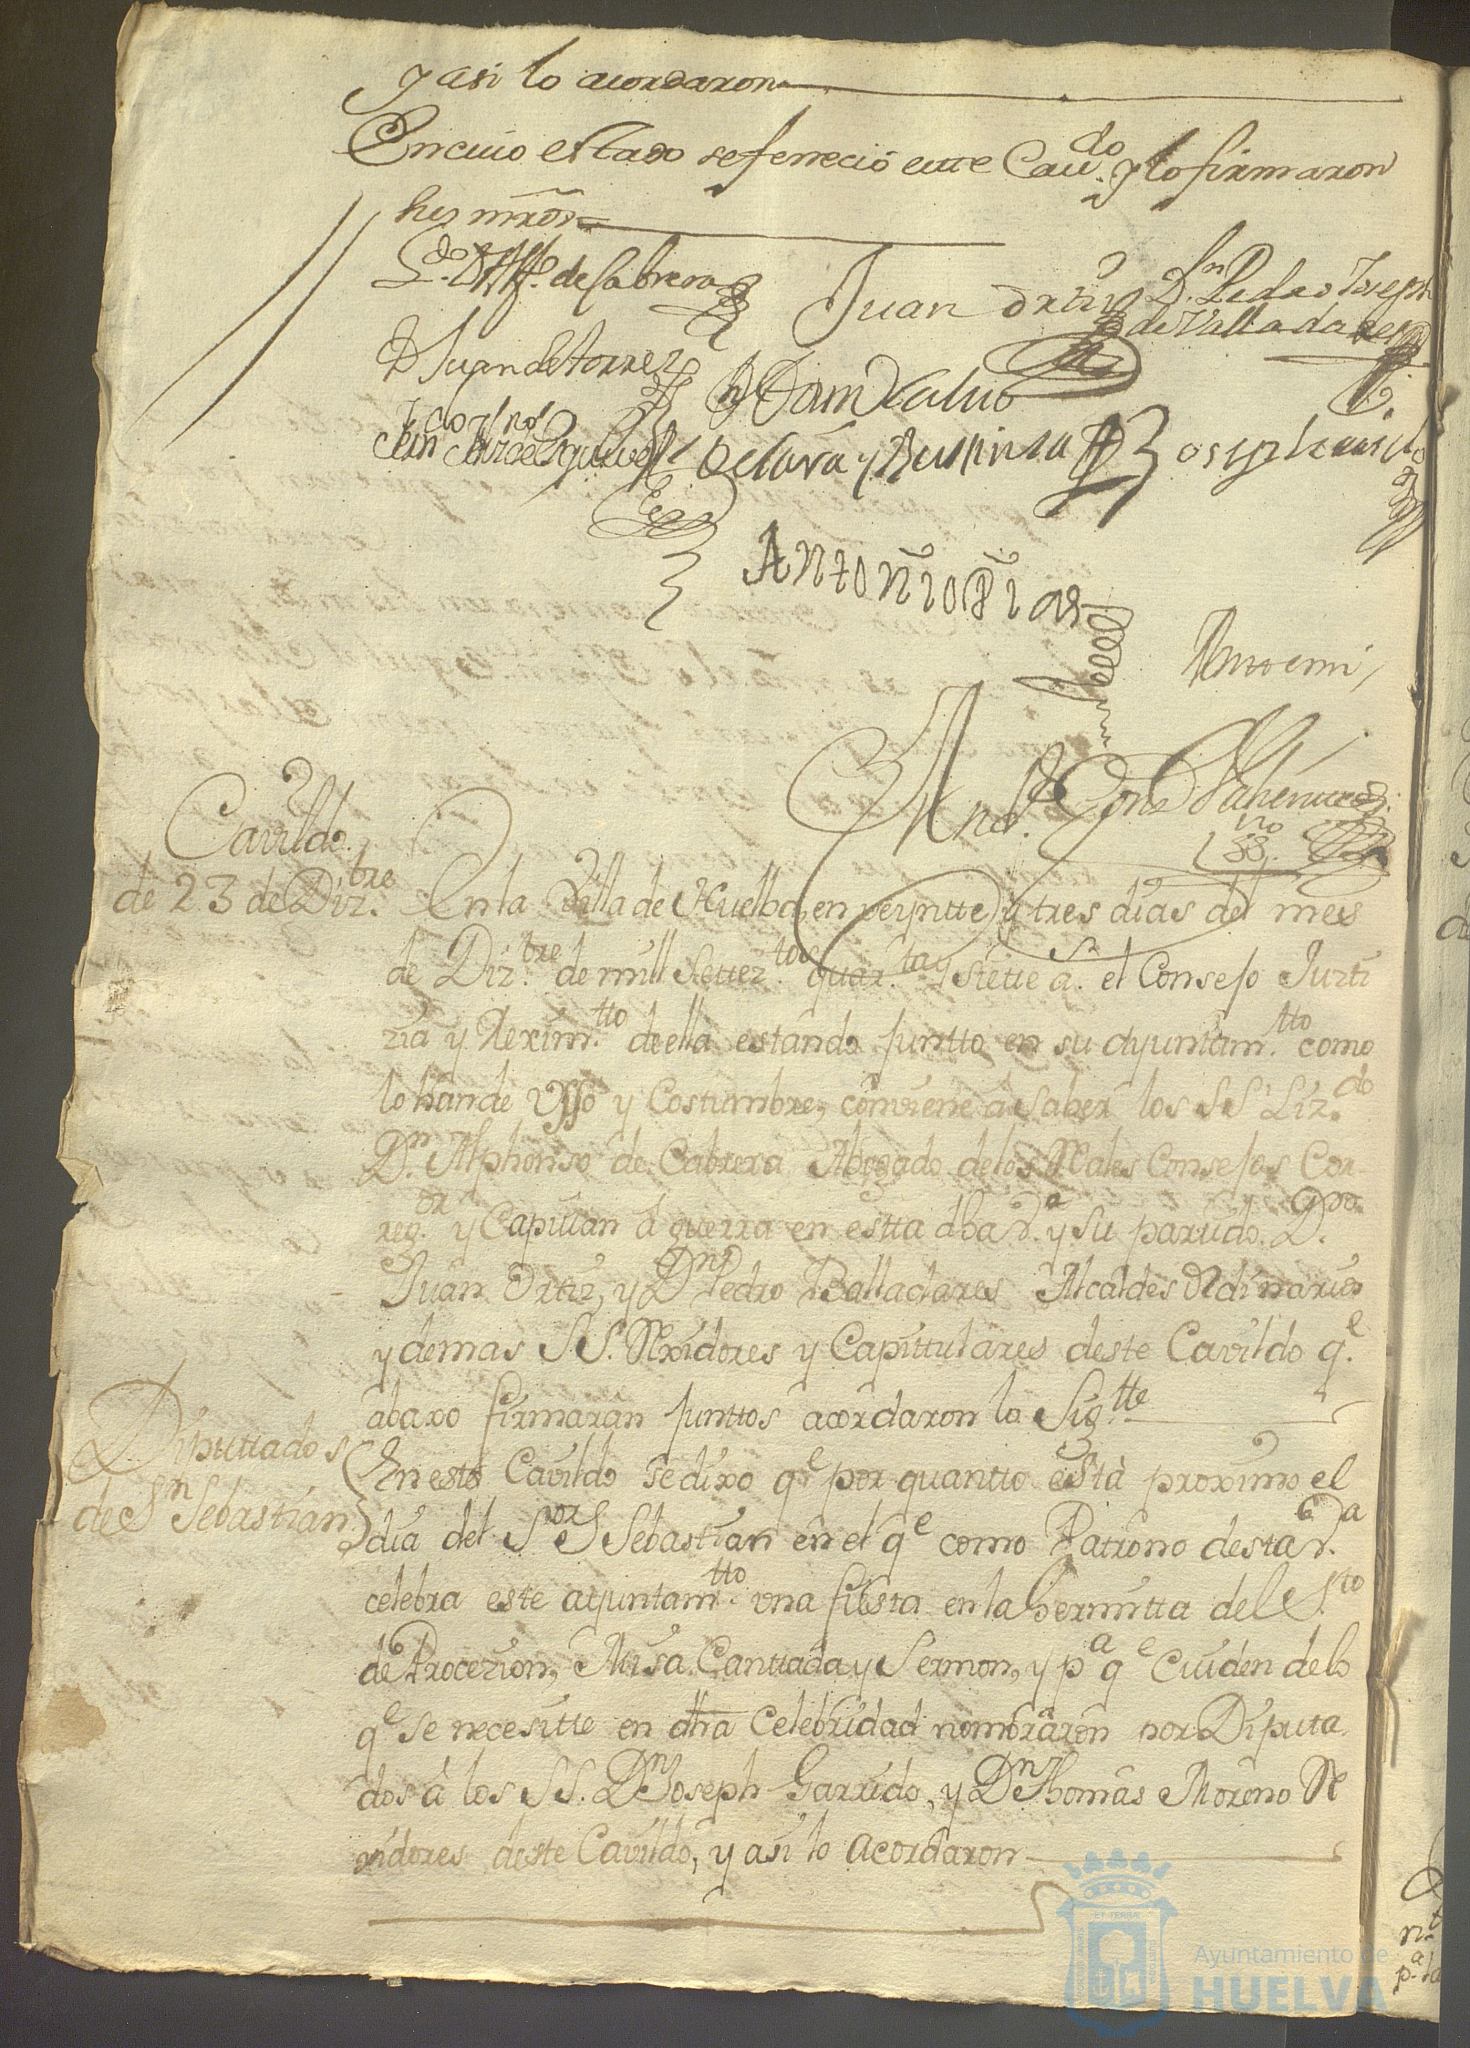 y asi lo acordaron
En cuio estado se feneció este Cav.do y lo firmaron
sus mrds
L.do D. Alph.o de Cabrera
Juan Ortiz
D.n Pedro Joseph
de Valladares
D Juan de torres
Antonio Dias
Antemi
Cavildo
de 23 de Diz.bre
En la Villa de Huelba, en veyntte y tres dias del mes
de Diz.bre de mill Settez.tos quar.ta y Siette a.s el Consejo Justi
zia y Rexim.tto de ella estando juntto en su ayuntam.tto como
lo han de Usso y Costumbre, conviene a saber los SS Liz.do
D.n Alphonso de Cabrera Abogado de los Rales Consejos Cor-
reg.or y Capitan a guerra en estta dha V.a y su partido. D.
Juan Ortiz, y D.n Pedro Balladares Alcaldes Ordinarios
y demas SS. Rexidores y Capittulares deste Cavildo q.e
abaxo firmaran junttos acordaron lo Sig.tte
Diputtados
de S.n Sebastian
En este Cavildo se dixo q.e por quantto està proximo el
dia del S.or S Sebastian en el q.e como Patrono desta V.a
celebra este ayuntam.tto una fiesta en la hermitta del S.to
de Procezion, Misa Canttada y Sermon, y p.a q.e Cuiden de lo
q.e se necesitte en dha Celebridad nombraron por Diputa
dos à los SS. D.n Joseph Garrido, y D.n Thomas Moreno Re
xidores deste Cavildo, y asi lo acordaron
Ayuntamiento de
HUELVA